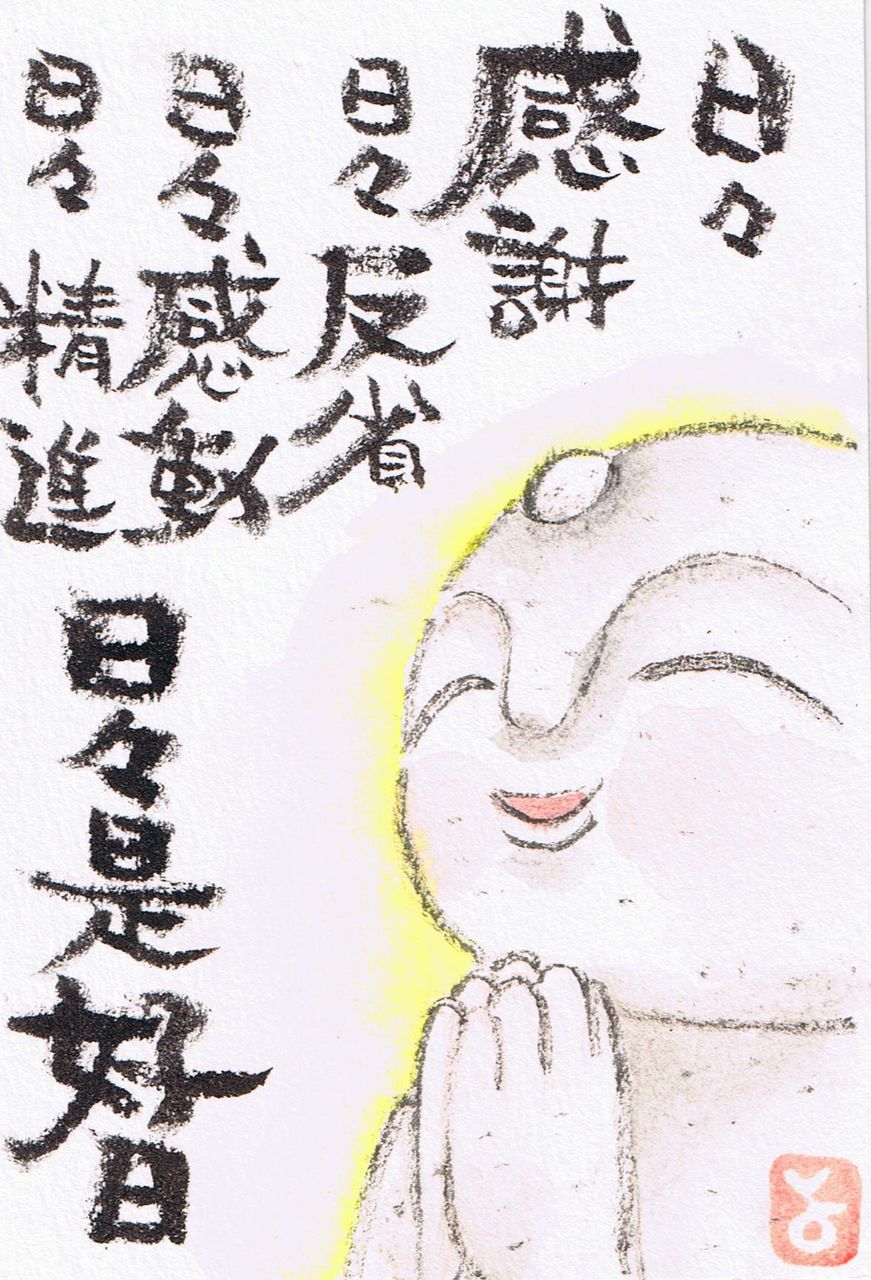 日々
感謝
日々反省
日々感動
日々精進
日々是好日